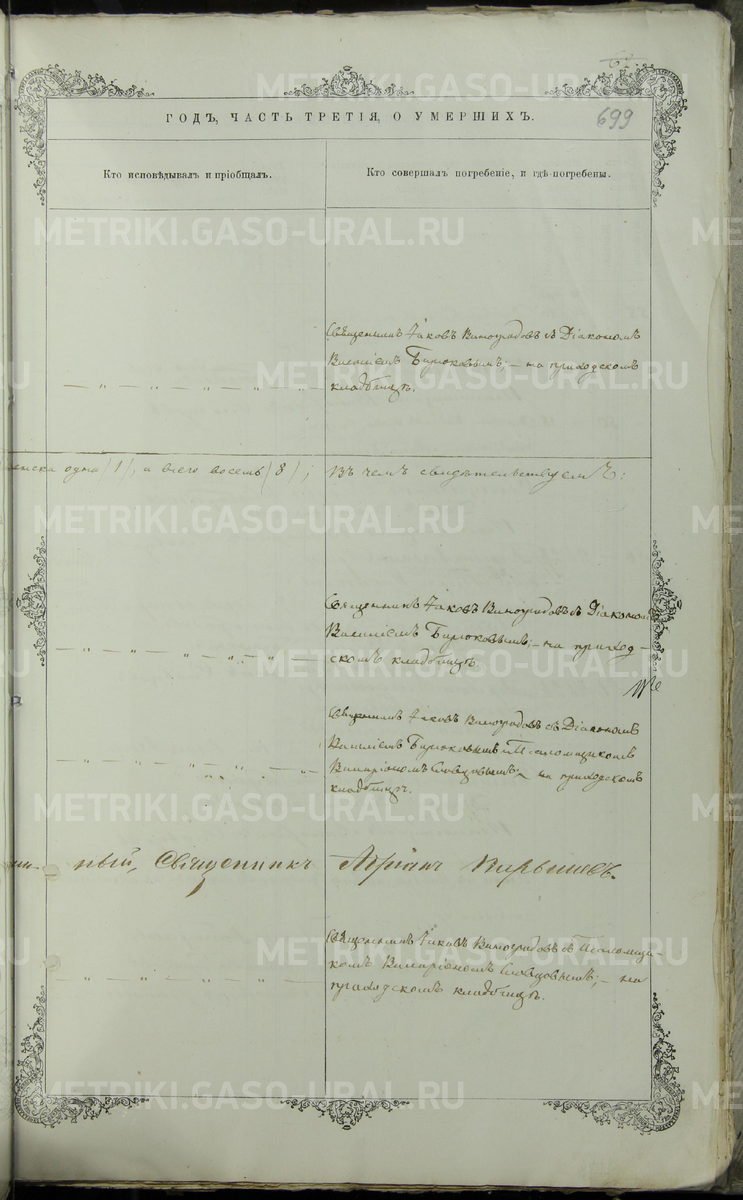 699
ГОДЪ, ЧАСТЬ ТРЕТІЯ, О УМЕРШИХЪ.
Кто исповѣдывалъ и пріобщалъ.
Кто совершалъ погребеніе, и гдѣ погребены.
Священникъ Іаковъ Виноградовъ съ Діакономъ
Василіемъ Бирюковымъ; — на приходскомъ
— „ — „ — „ — „ — „ —
кладбищѣ.
одна /1/, а всего восемь /8/; Въ чемъ свидѣтельствуемъ:
Священникъ Іаковъ Виноградовъ съ Діакономъ
Василіемъ Бирюковымъ; — на приход-
— „ — „ — „ — „ — „ —
скомъ кладбищѣ
Священникъ Іаковъ Виноградовъ съ Діакономъ
Василіемъ Бирюковымъ и Псаломщикомъ
— „ — „ — „ — „ — „ —
Словцовымъ; — на приходскомъ
кладбищѣ.
ный, Священникъ
Священникъ Іаковъ Виноградовъ съ Псаломщи-
комъ Словцовымъ; — на
— „ — „ — „ — „ — „ —
приходскомъ кладбищѣ.
METRIKI.GASO-URAL.RU